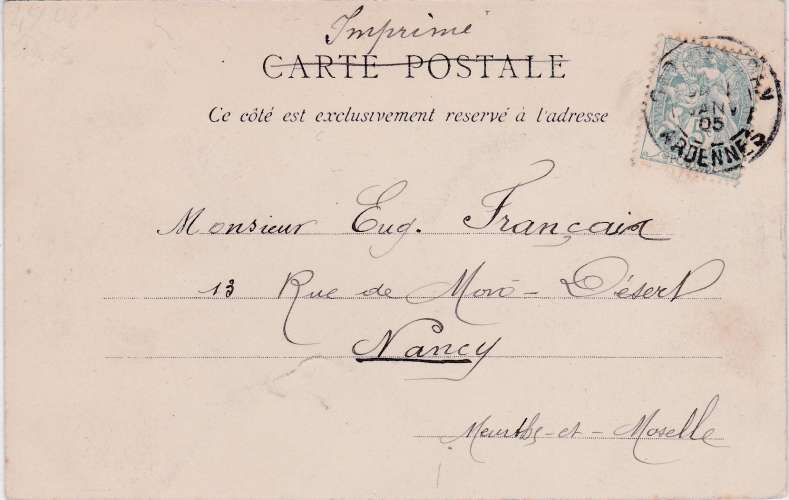 Imprimé
CARTE POSTALE
Ce côté est exclusivement reservé à l'adresse
JANV
05
ARDENNES
Monsieur Eug. Françaix
13 Rue de Mon-Désert
Nancy
Meurthe-et-Moselle